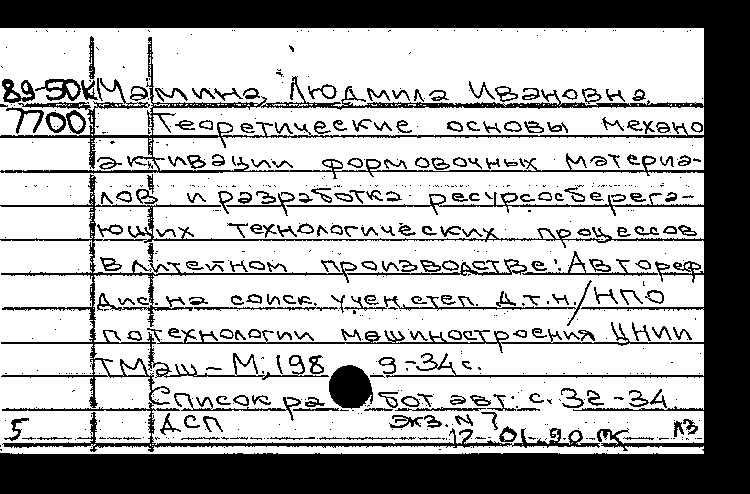 89-50К Мамина, Людмила Ивановна
7700 Теоретические основы механо
активации формовочных материа-
лов и разработка ресурсосберега-
ющих технологических процессов
в литейном производстве: Автореф
дис. на соиск. учен. степ. д.т.н. / НПО
по технологии машиностроения ЦНИИ
ТМаш. - М., 1989 - 34 с.
Список работ авт. с. 32-34
5 ДСП Экз. N 7
12.01.90